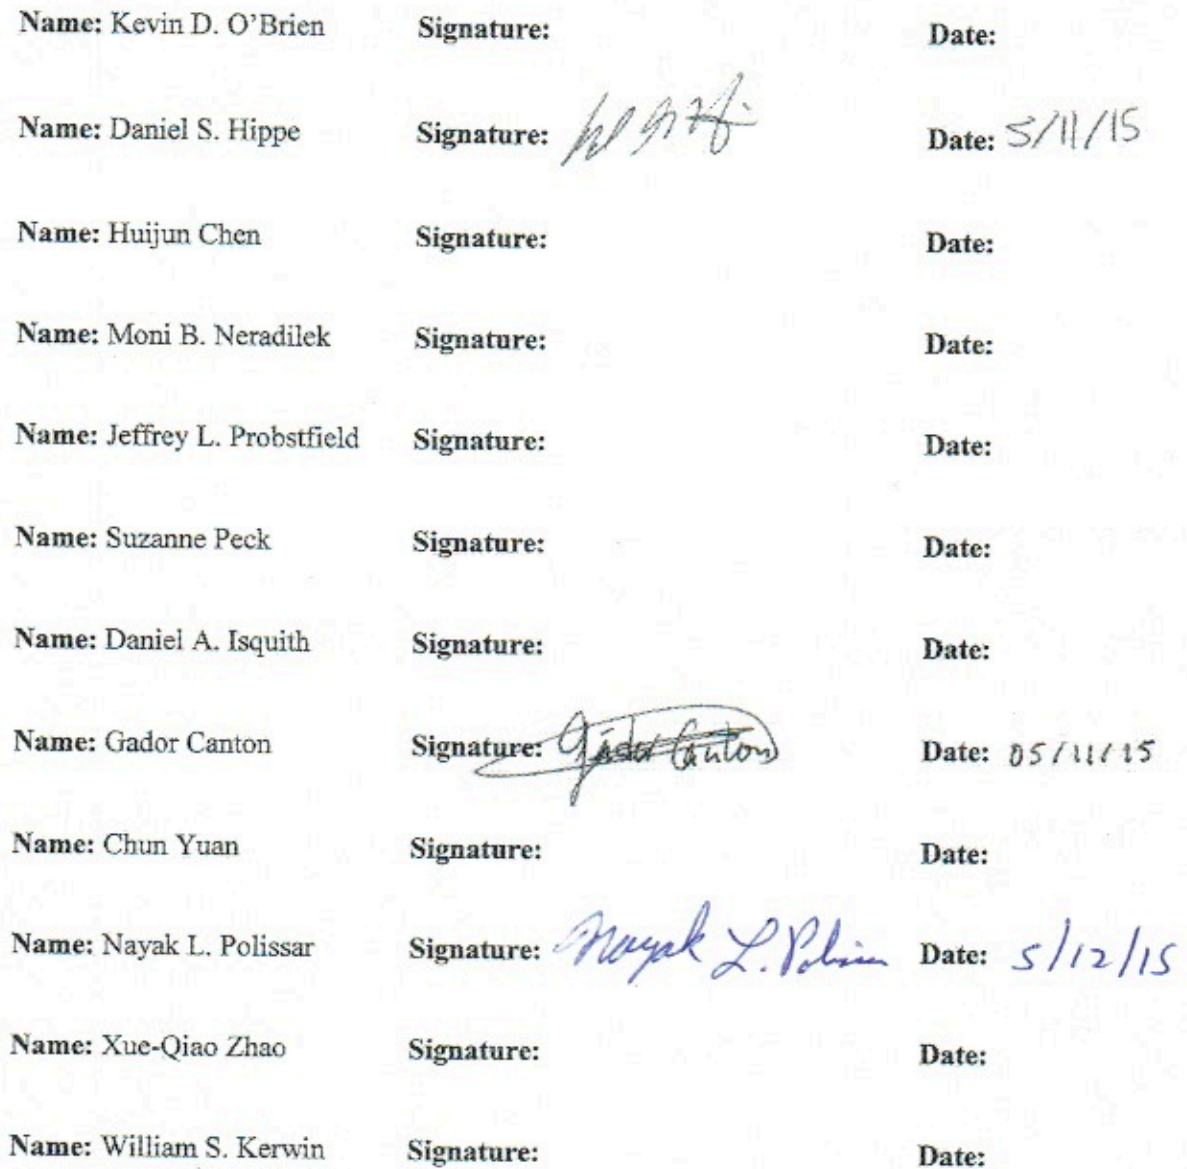 Name: Kevin D. O’Brien Signature: Date:
Name: Daniel S. Hippe Signature: Date: 5/11/15
Name: Huijun Chen Signature: Date:
Name: Moni B. Neradilek Signature: Date:
Name: Jeffrey L. Probstfield Signature: Date:
Name: Suzanne Peck Signature: Date:
Name: Daniel A. Isquith Signature: Date:
Name: Gador Canton Signature: Gador Canton Date: 05/11/15
Name: Chun Yuan Signature: Date:
Name: Nayak L. Polissar Signature: Nayak L. Polissar Date: 5/12/15
Name: Xue-Qiao Zhao Signature: Date:
Name: William S. Kerwin Signature: Date: